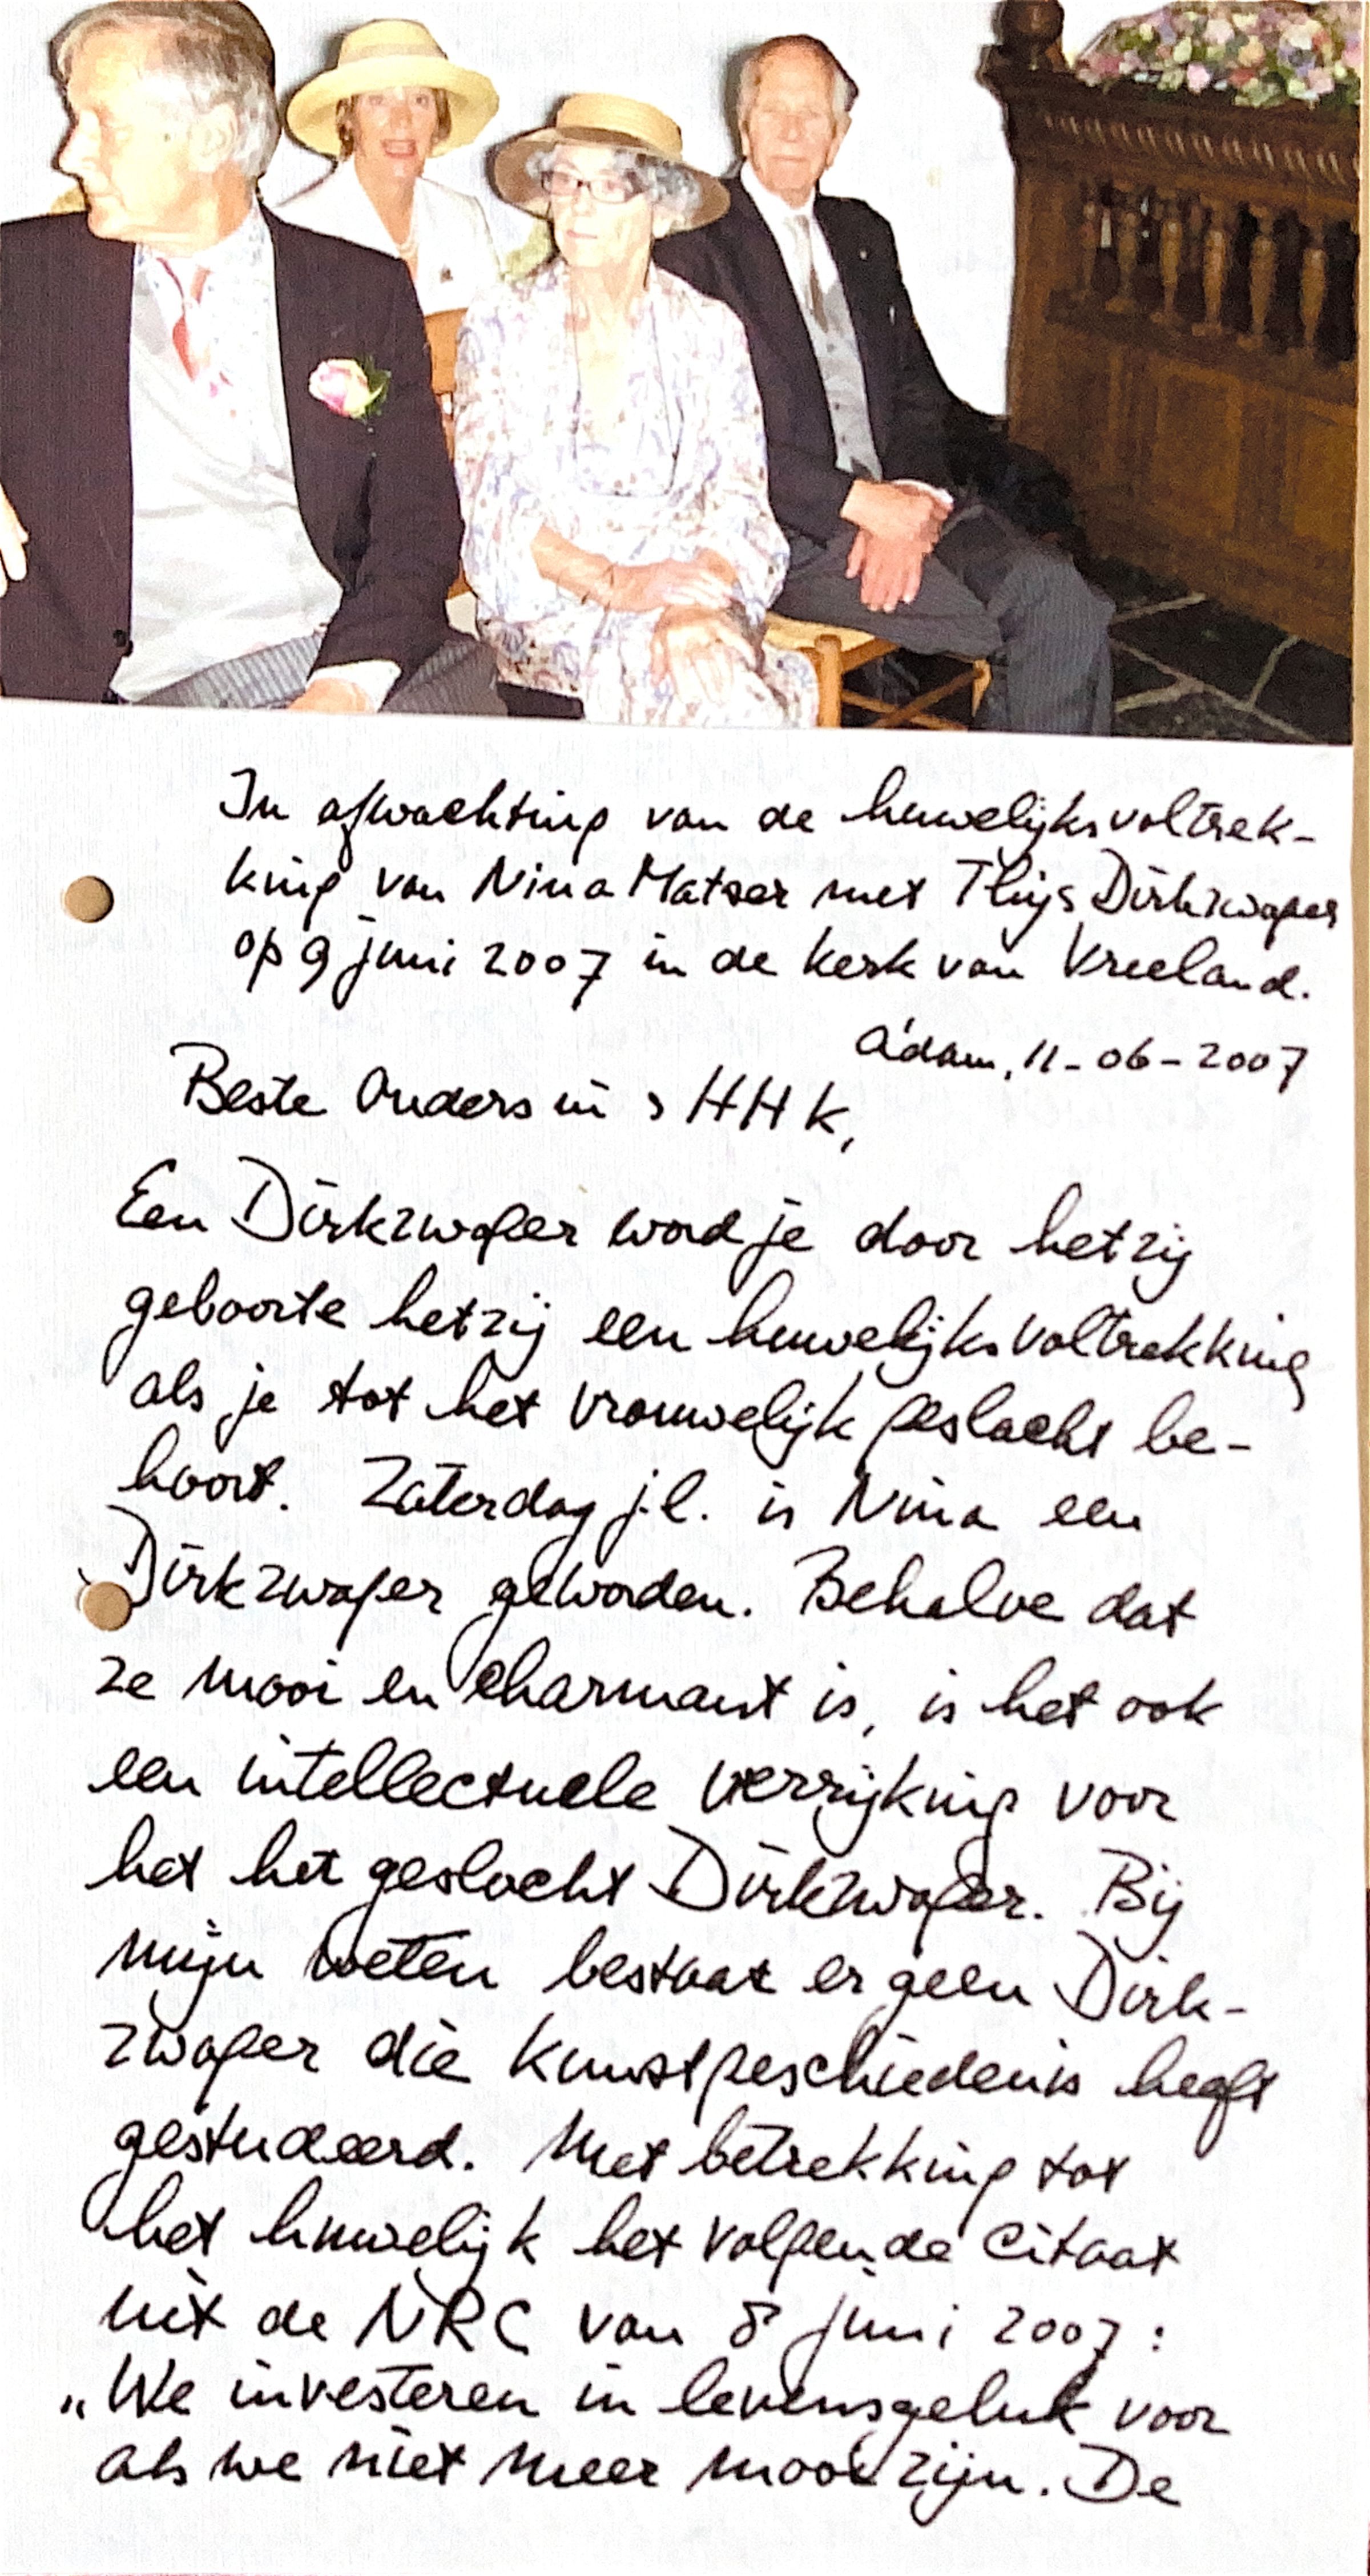 In afwachting van de huwelijksvoltrek-
king van Nina Matser met Thijs Dirkzwager
op 9 juni 2007 in de kerk van Vreeland.
A'dam, 11-06-2007
Beste Ouders in 's HHK,
Een Dirkzwager word je door hetzij
geboorte hetzij een huwelijksvoltrekking
als je tot het vrouwelijk geslacht be-
hoort. Zaterdag j.l. is Nina een
Dirkzwager geworden. Behalve dat
ze mooi en charmant is, is het ook
een intellectuele verrijking voor
het het geslacht Dirkzwager. Bij
mijn weten bestaat er geen Dirk-
zwager die kunstgeschiedenis heeft
gestudeerd. Met betrekking tot
het huwelijk het volgende citaat
uit de NRC van 8 juni 2007:
„We investeren in levensgeluk voor
als we niet meer mooi zijn. De